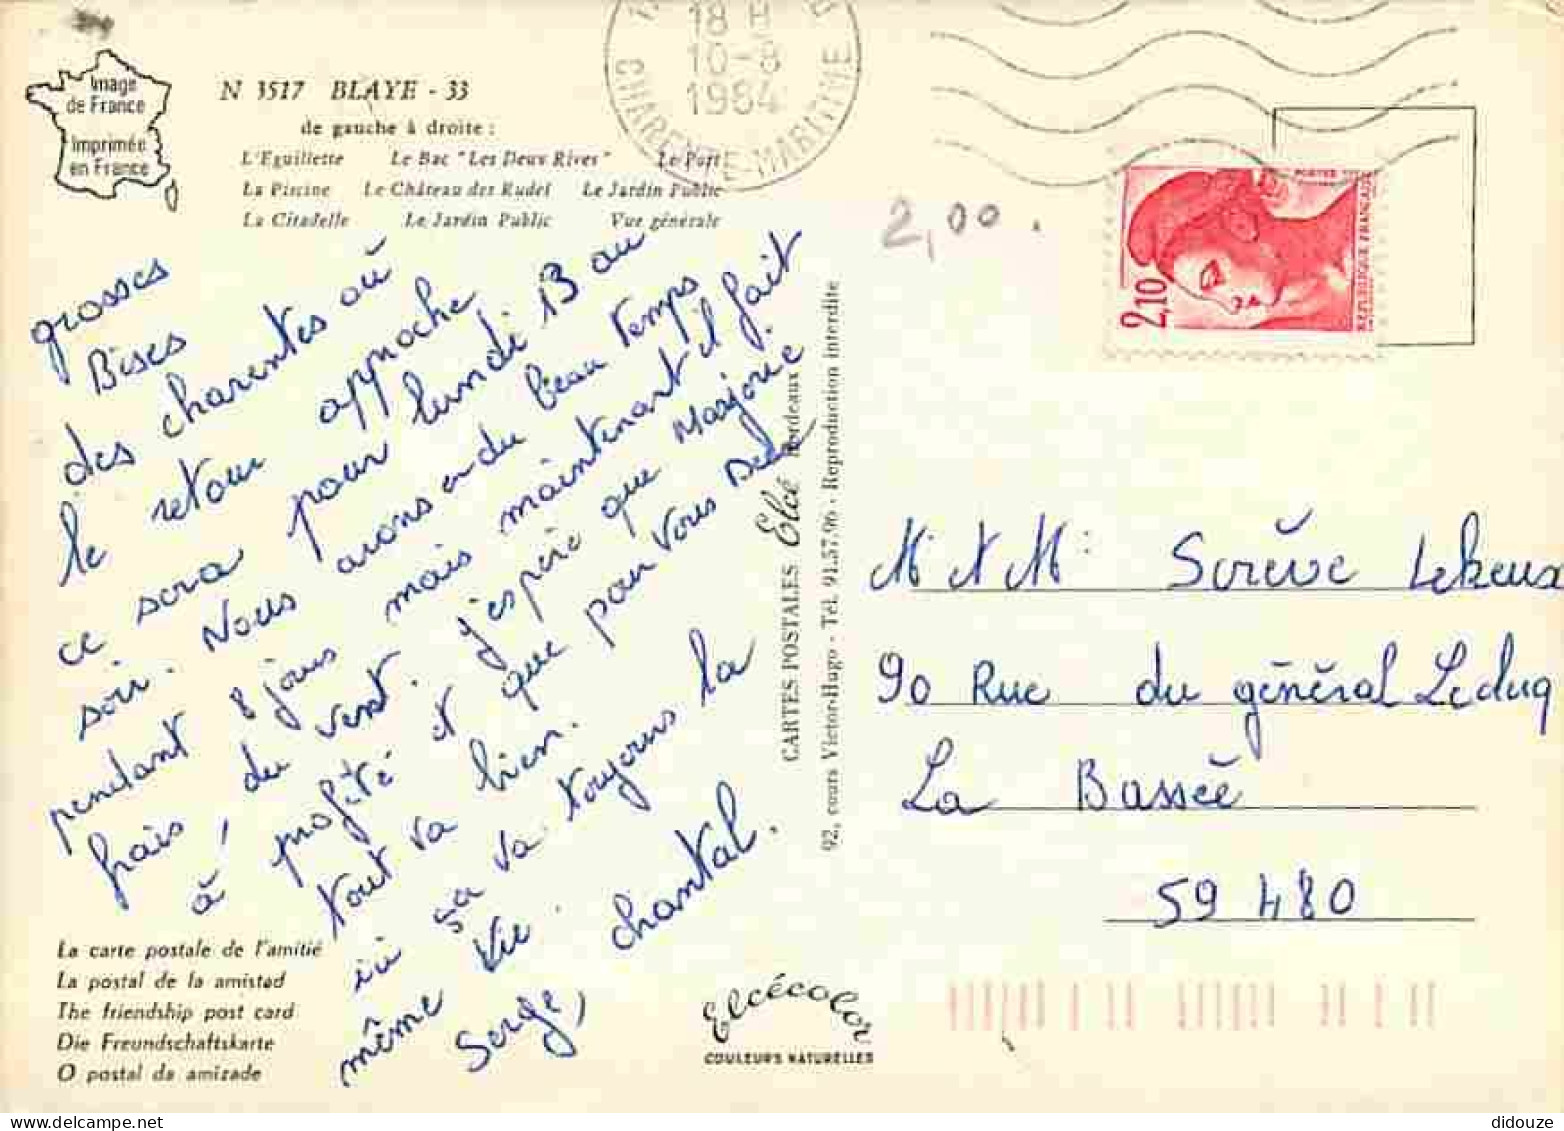 Image
de France
Imprimée
en France
N 3517 BLAYE - 33
de gauche à droite :
L'Eguillette Le Bac "Les Deux Rives" Le Port
La Piscine Le Château des Rudel Le Jardin Public
La Citadelle Le Jardin Public Vue générale
18 H
10-8
1984
CHARENTE-MARITIME
2,00
POSTES
2,10
REPUBLIQUE FRANCAISE
grosses
Bises
des charentes où
le retour approche
ce sera pour lundi 13 au
soir. Nous avons eu du beau temps
pendant 8 jours mais maintenant il fait
frais, du vent. J'espère que Marjorie
à profité et que pour vous Deux
tout va bien.
ici sa va toujours la
même vie.
Serge, chantal.
La carte postale de l'amitié
La postal de la amistad
The friendship post card
Die Freundschaftskarte
O postal da amizade
CARTES POSTALES Elcé Bordeaux
92, cours Victor-Hugo - Tél. 91.57.96 - Reproduction interdite
Elcécolor
COULEURS NATURELLES
M. et M Scrève Lekeux
90 Rue du général Leclerq
La Bassée
59 480
delcampe.net
didouze